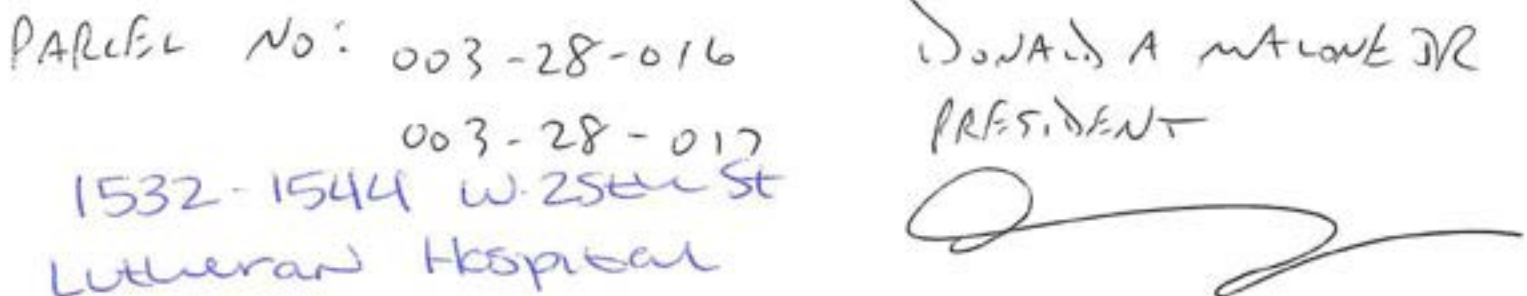 PARCEL NO: 003-28-016
003-28-017
1532-1544 W. 25th St
Lutheran Hospital
DONALD A MALONE JR
PRESIDENT